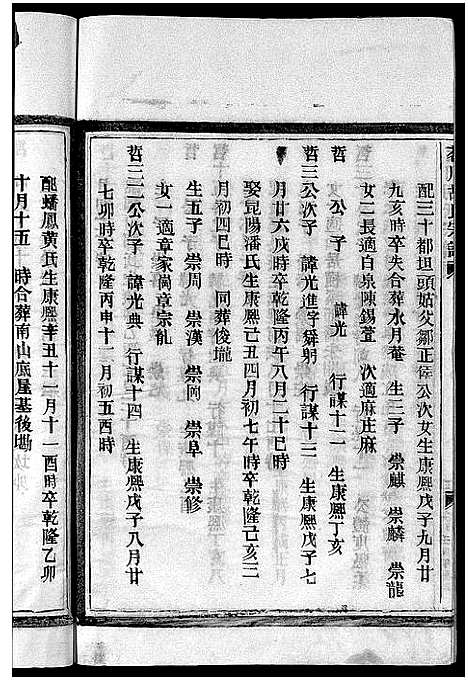 配三十都坦頭姑父鄒正侯公次女生康熙戊子九月廿
九亥時卒失合葬水月菴 生三子 崇麒 崇麟 崇龍
女二長適白泉陳錫萱 次適麻庄麻
哲 公子 諱光 行謀十二 生康熙丁亥
哲三公次子 諱光進字舜躬 行謀十三 生康熙戊子七
月廿六戌時卒乾隆丙午八月二十巳時
娶昆陽潘氏生康熙己丑四月初七午時卒乾隆己亥三
月初四巳時 同葬後壠
生五子 崇周 崇漢 崇岡 崇阜 崇修
女一適章家崗章宗龍
哲三二公次子 諱光典 行謀十四 生康熙戊子八月廿
七卯時卒乾隆丙申十二月初五酉時
配蟠鳳黃氏生康熙辛丑十一月十一酉時卒乾隆乙卯
十月十五 時合葬南山底屋基後塝